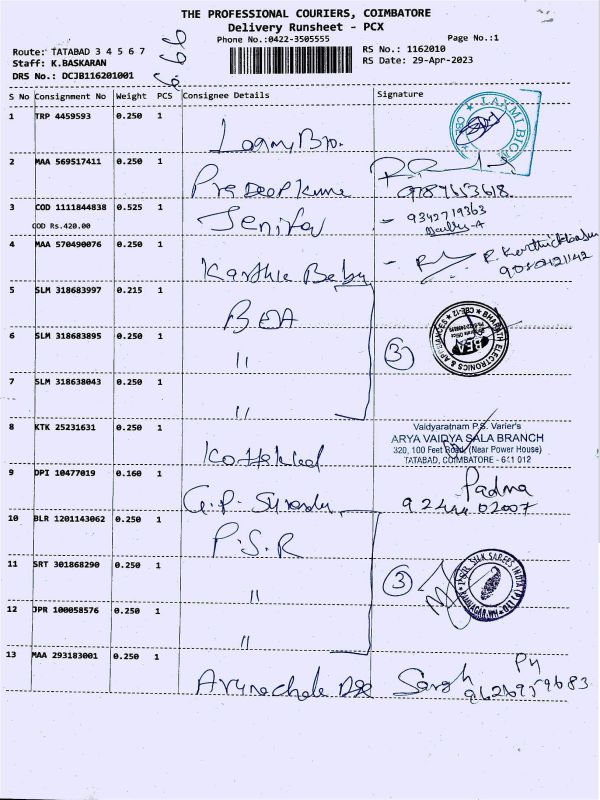 THE PROFESSIONAL COURIERS, COIMBATORE
Delivery Runsheet - PCX
Phone No.:0422-3505555
Page No.:1
Route: TATABAD 3 4 5 6 7
Staff: K.BASKARAN
DRS No.: DCJB116201001
RS No.: 1162010
RS Date: 29-Apr-2023
S No Consignment No Weight PCS Consignee Details Signature
1 TRP 4459593 0.250 1
LAXMI
2 MAA 569517411 0.250 1
PraDeep Kumar
9787613618
3 COD 1111844838 0.525 1
COD Rs.420.00
Jenifer
- 9342719363
4 MAA 570490076 0.250 1
Karthic Babu
5 SLM 318683997 0.215 1
BEA
6 SLM 318683895 0.250 1
"
3
BHARATH ELECTRONICS & APPLIANCES ★ CBE-12 ★
BEA
7 SLM 318638043 0.250 1
"
8 KTK 25231631 0.250 1
Kottakkal
Vaidyaratnam P.S. Varier's
ARYA VAIDYA SALA BRANCH
320, 100 Feet Road, (Near Power House)
TATABAD, COIMBATORE - 641 012
9 DPI 10477019 0.160 1
G.P.
Padma
10 BLR 1201143062 0.250 1
P.S.R
11 SRT 301868290 0.250 1
"
3
SILK SAREES INDIA (P) LTD
12 JPR 100058576 0.250 1
"
13 MAA 293183001 0.250 1